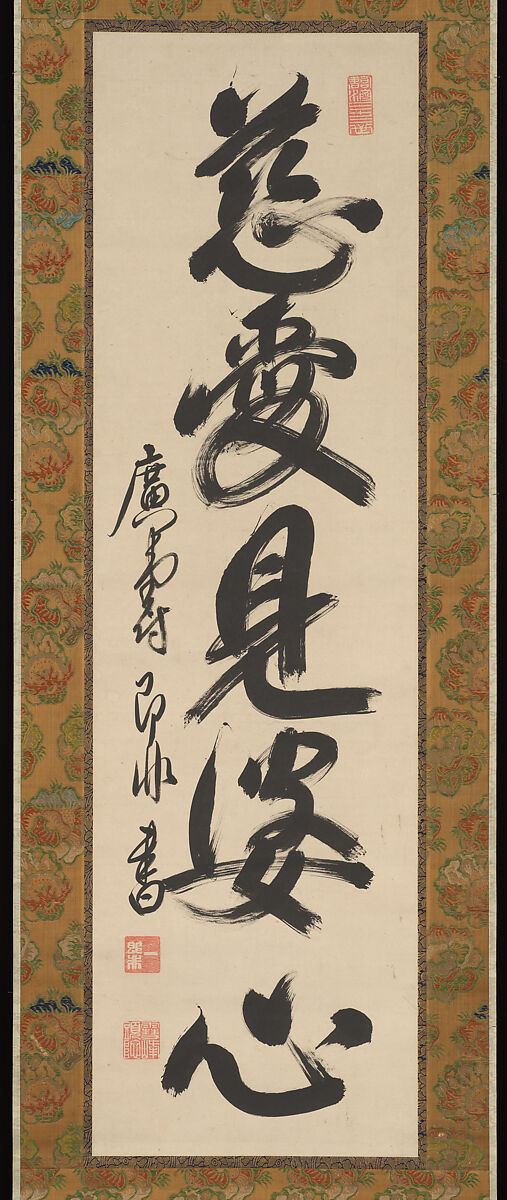 慈愛見婆心
廣壽即非書